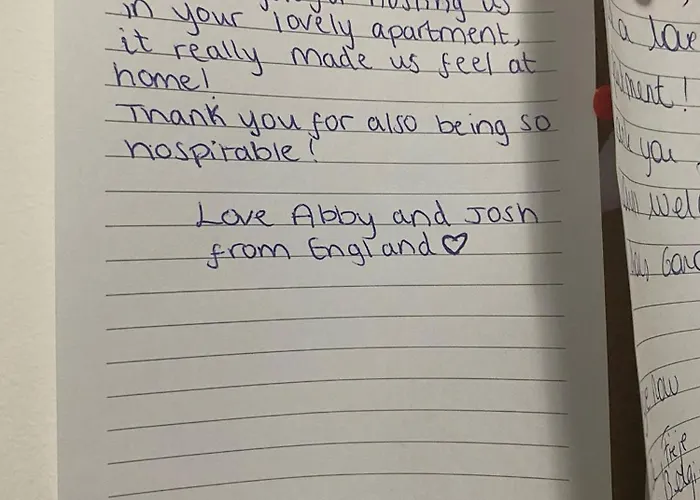 hosting us
in your lovely apartment,
it really made us feel at
home!
Thank you for also being so
hospitable!
Love Abby and Josh
from England♡
a love
you